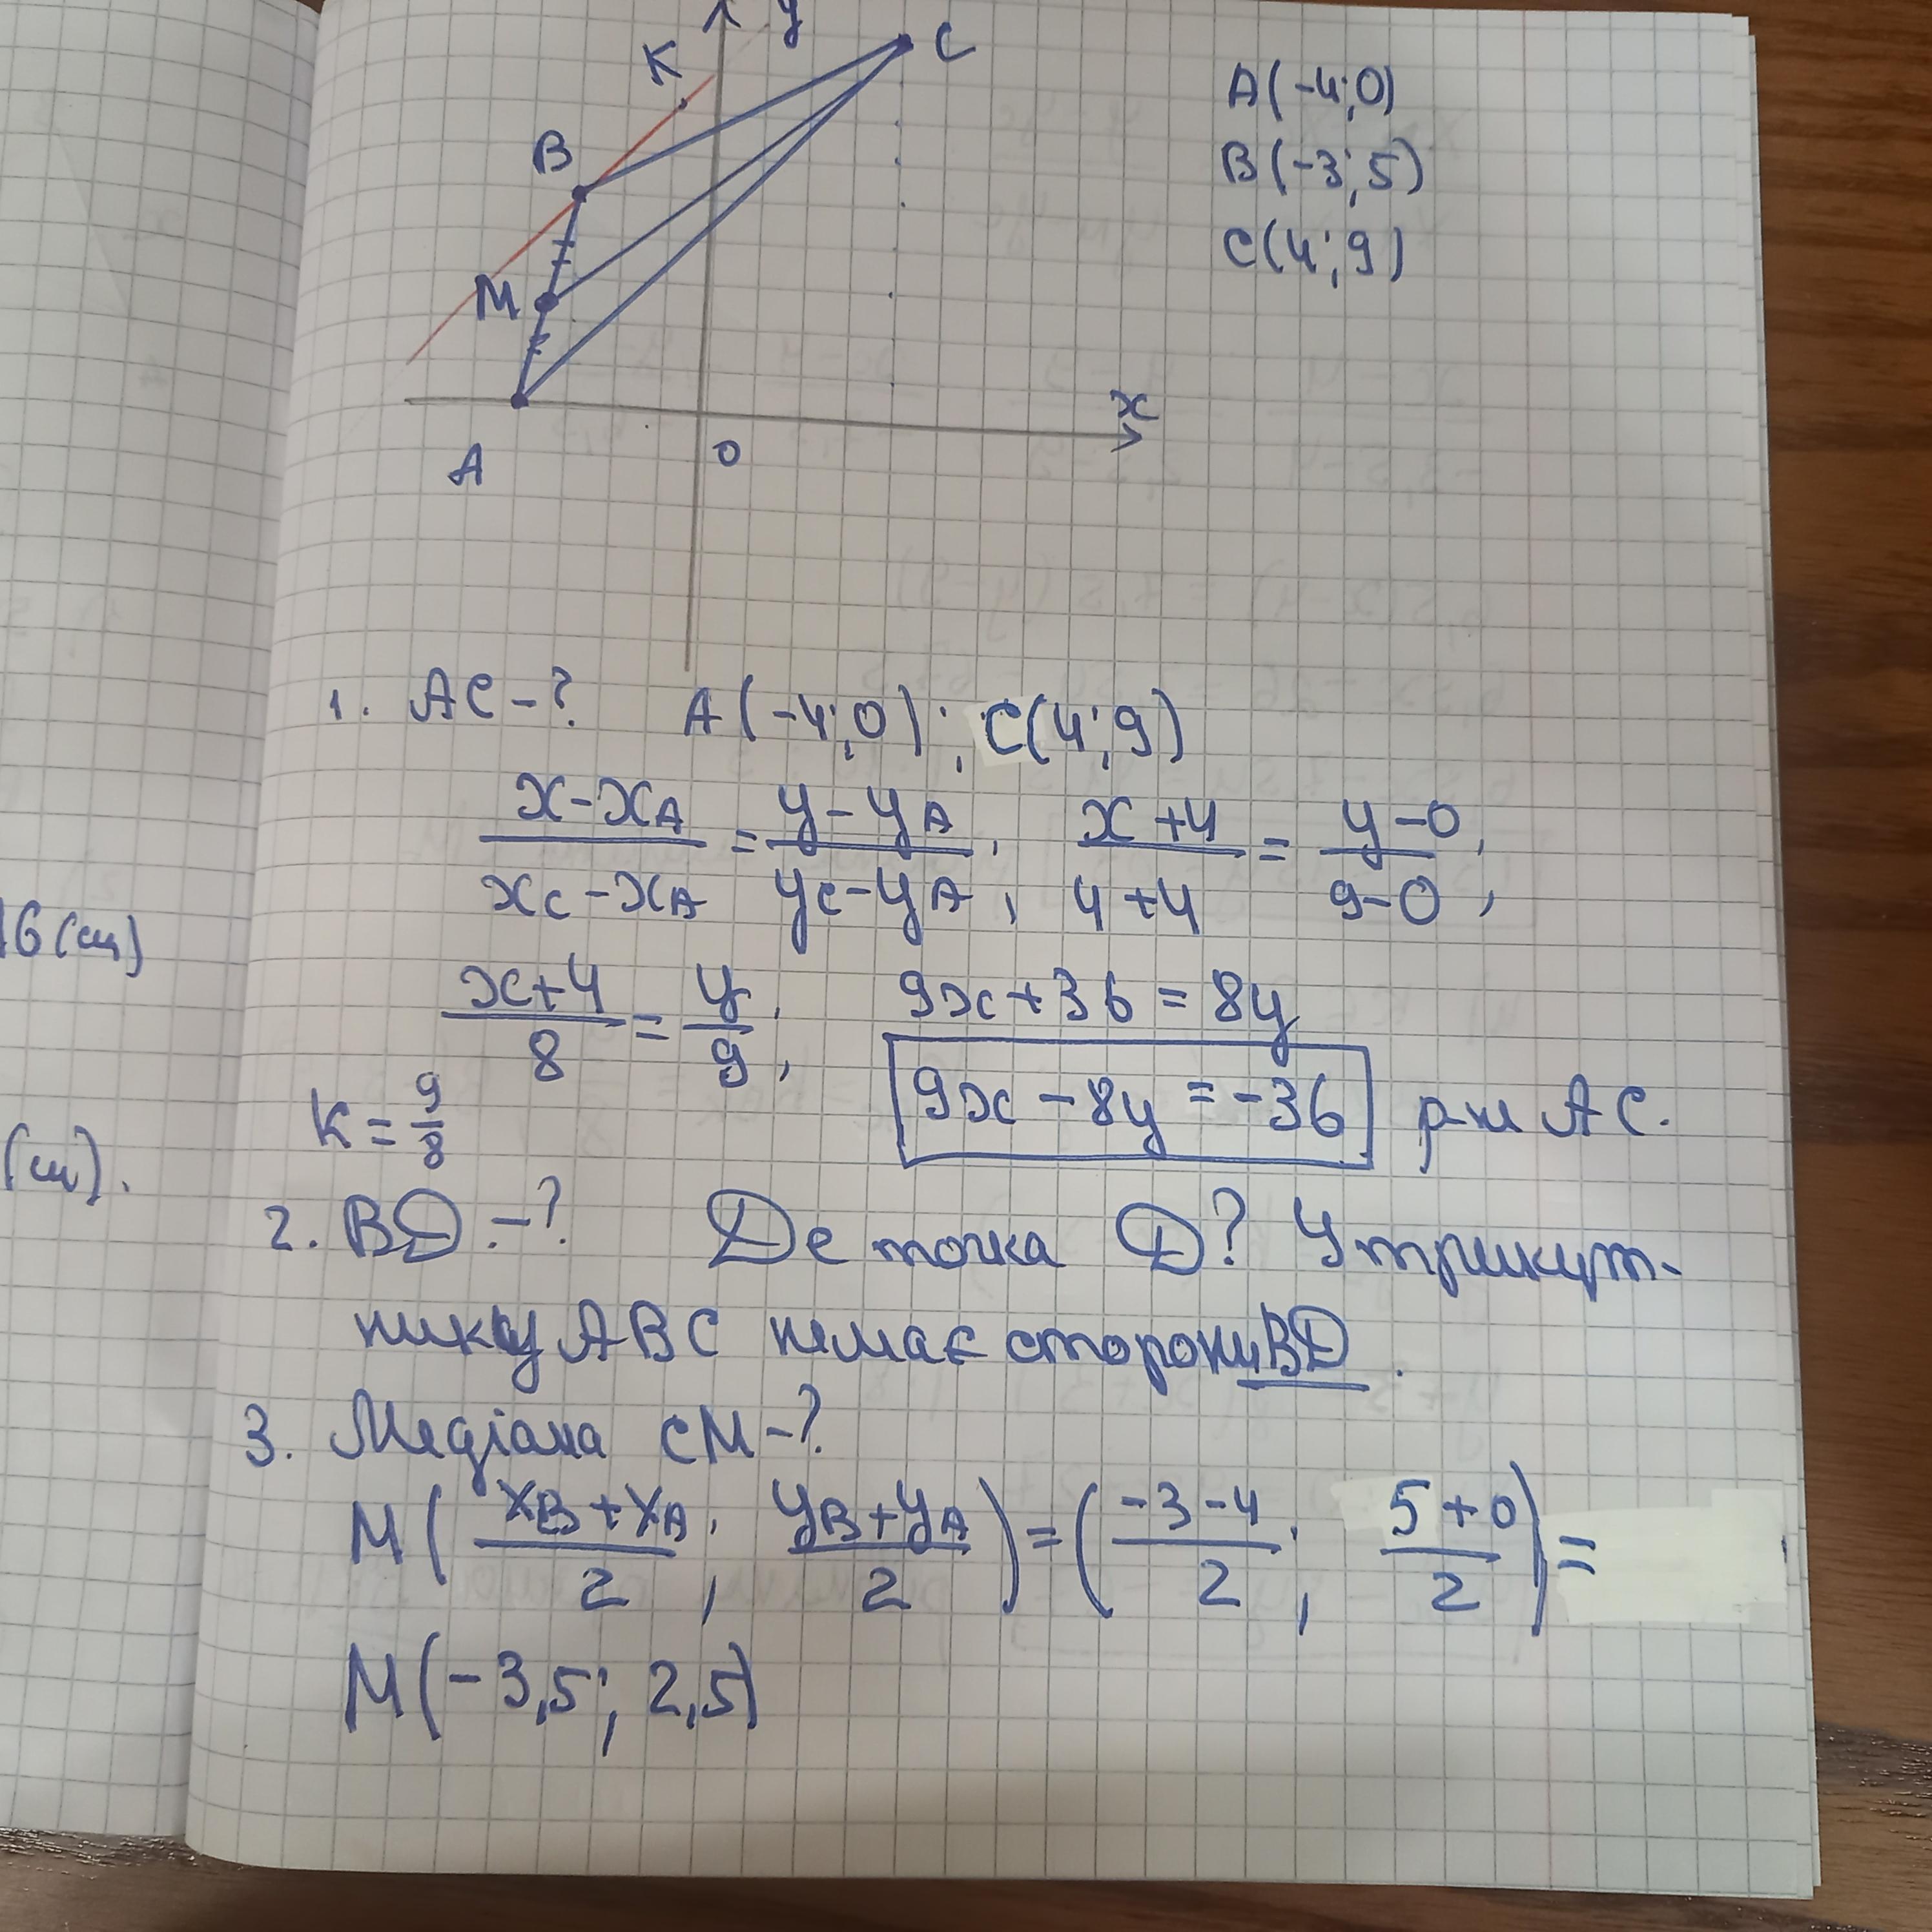 y
K
C
B
M
x
A
0
A(-4;0)
B(-3;5)
C(4;9)
16 (см)
(см).
1. AC-? A(-4;0); C(4;9)
\frac{x-x_A}{x_C-x_A} = \frac{y-y_A}{y_C-y_A}; \frac{x+4}{4+4} = \frac{y-0}{9-0};
\frac{x+4}{8} = \frac{y}{9}; 9x+36=8y
K=\frac{9}{8} 9x-8y=-36 р-ня AC.
2. BD-? Де точка D? У трикут-
нику ABC немає сторони BD.
3. Медіана CM-?
M(\frac{x_B+x_A}{2}; \frac{y_B+y_A}{2})=(\frac{-3-4}{2}; \frac{5+0}{2})=
M(-3,5; 2,5)